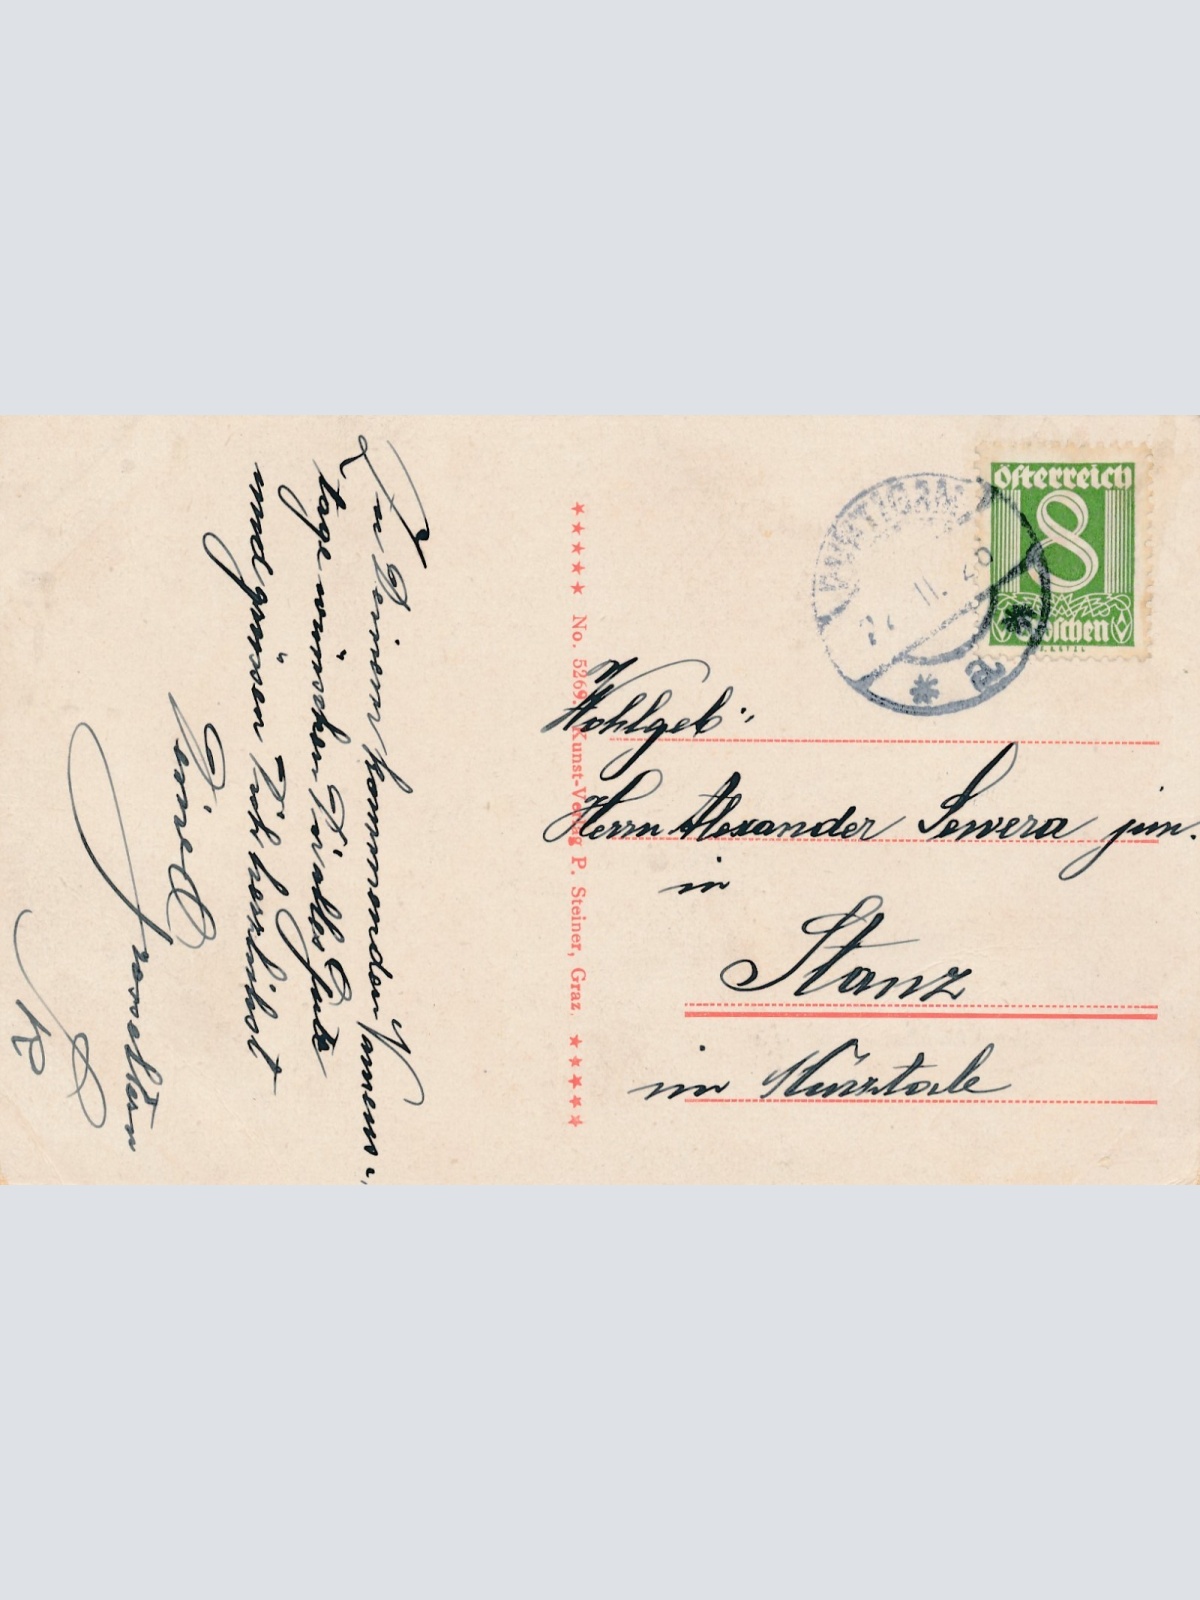 Zu Deinem kommenden Namens-
tage wünschen Dir alles Gute
und grüssen Dich herzlichst
Deine
★★★★★ No. 5269 Kunst-Verlag P. Steiner, Graz. ★★★★★
Österreich
8
Groschen
11. 28
a
Wohlgeb.
Herrn Alexander Sewera jun.
in
Stanz
im Mürztale